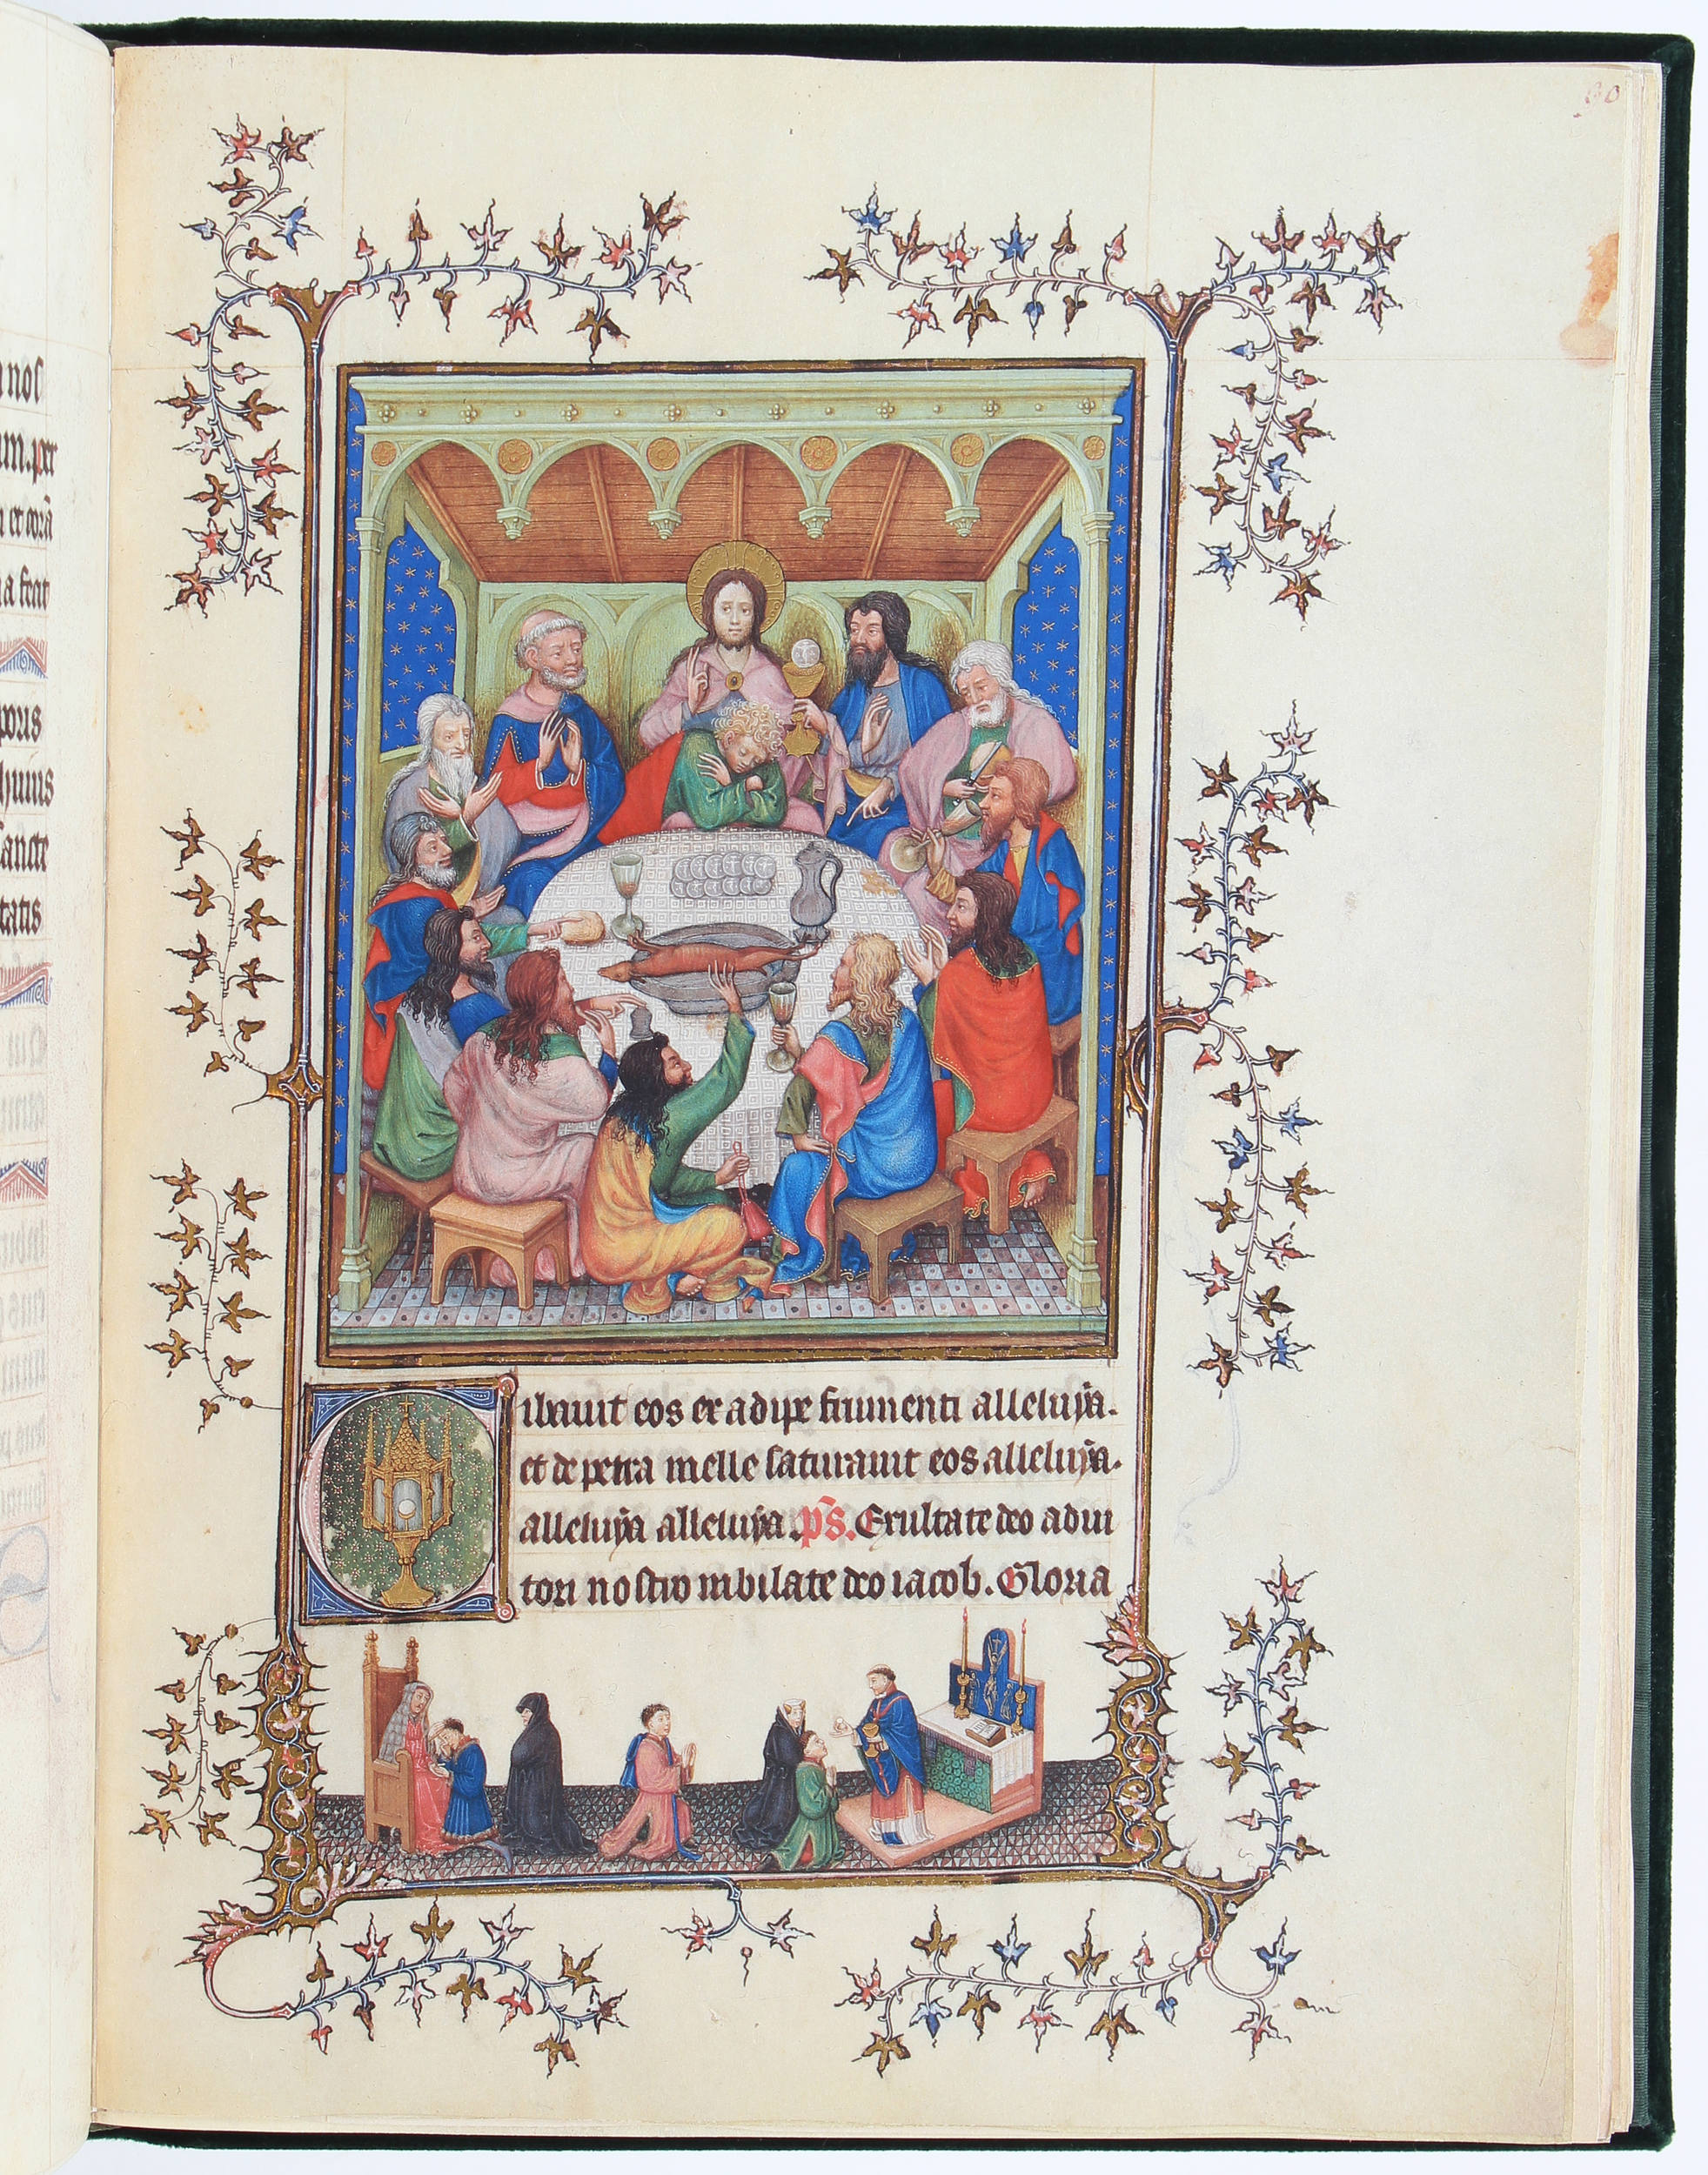 60
nos
um. per
et corā
a frat
huius
sancte
tatis
Cibauit eos ex adipe frumenti alleluya.
et de petra melle saturauit eos alleluya.
alleluya alleluya. ps. Exultate deo adiu
tori nostro iubilate deo iacob. Gloria